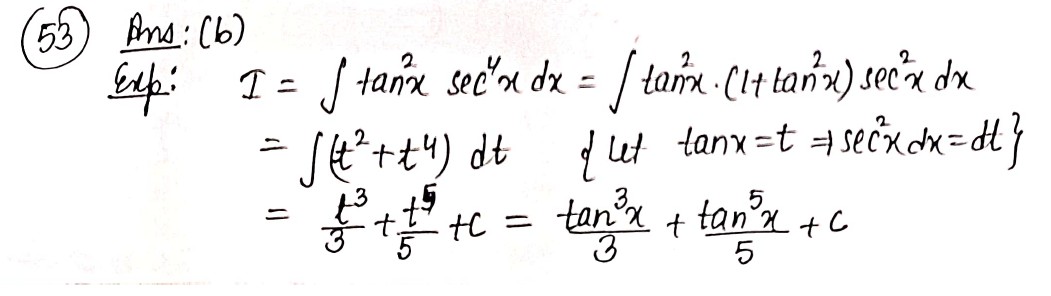 53 Ans: (b)
Exp: I = ∫ tan²x sec⁴x dx = ∫ tan²x · (1 + tan²x) sec²x dx
= ∫ (t² + t⁴) dt { Let tanx = t ⇒ sec²x dx = dt }
= t³/3 + t⁵/5 + c = tan³x/3 + tan⁵x/5 + c